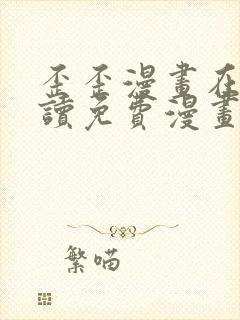 歪歪漫畫在
讀免費漫畫
繁喵